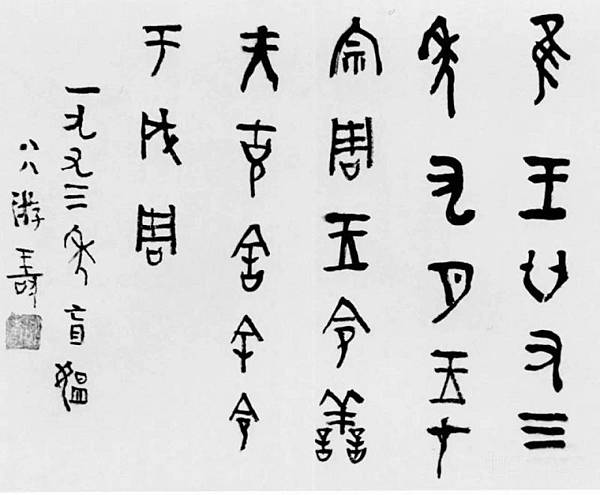 隹王廿又三
年九月王才
宗周王令善
夫克舍令
于成周
一九九三年盲
八八游寿